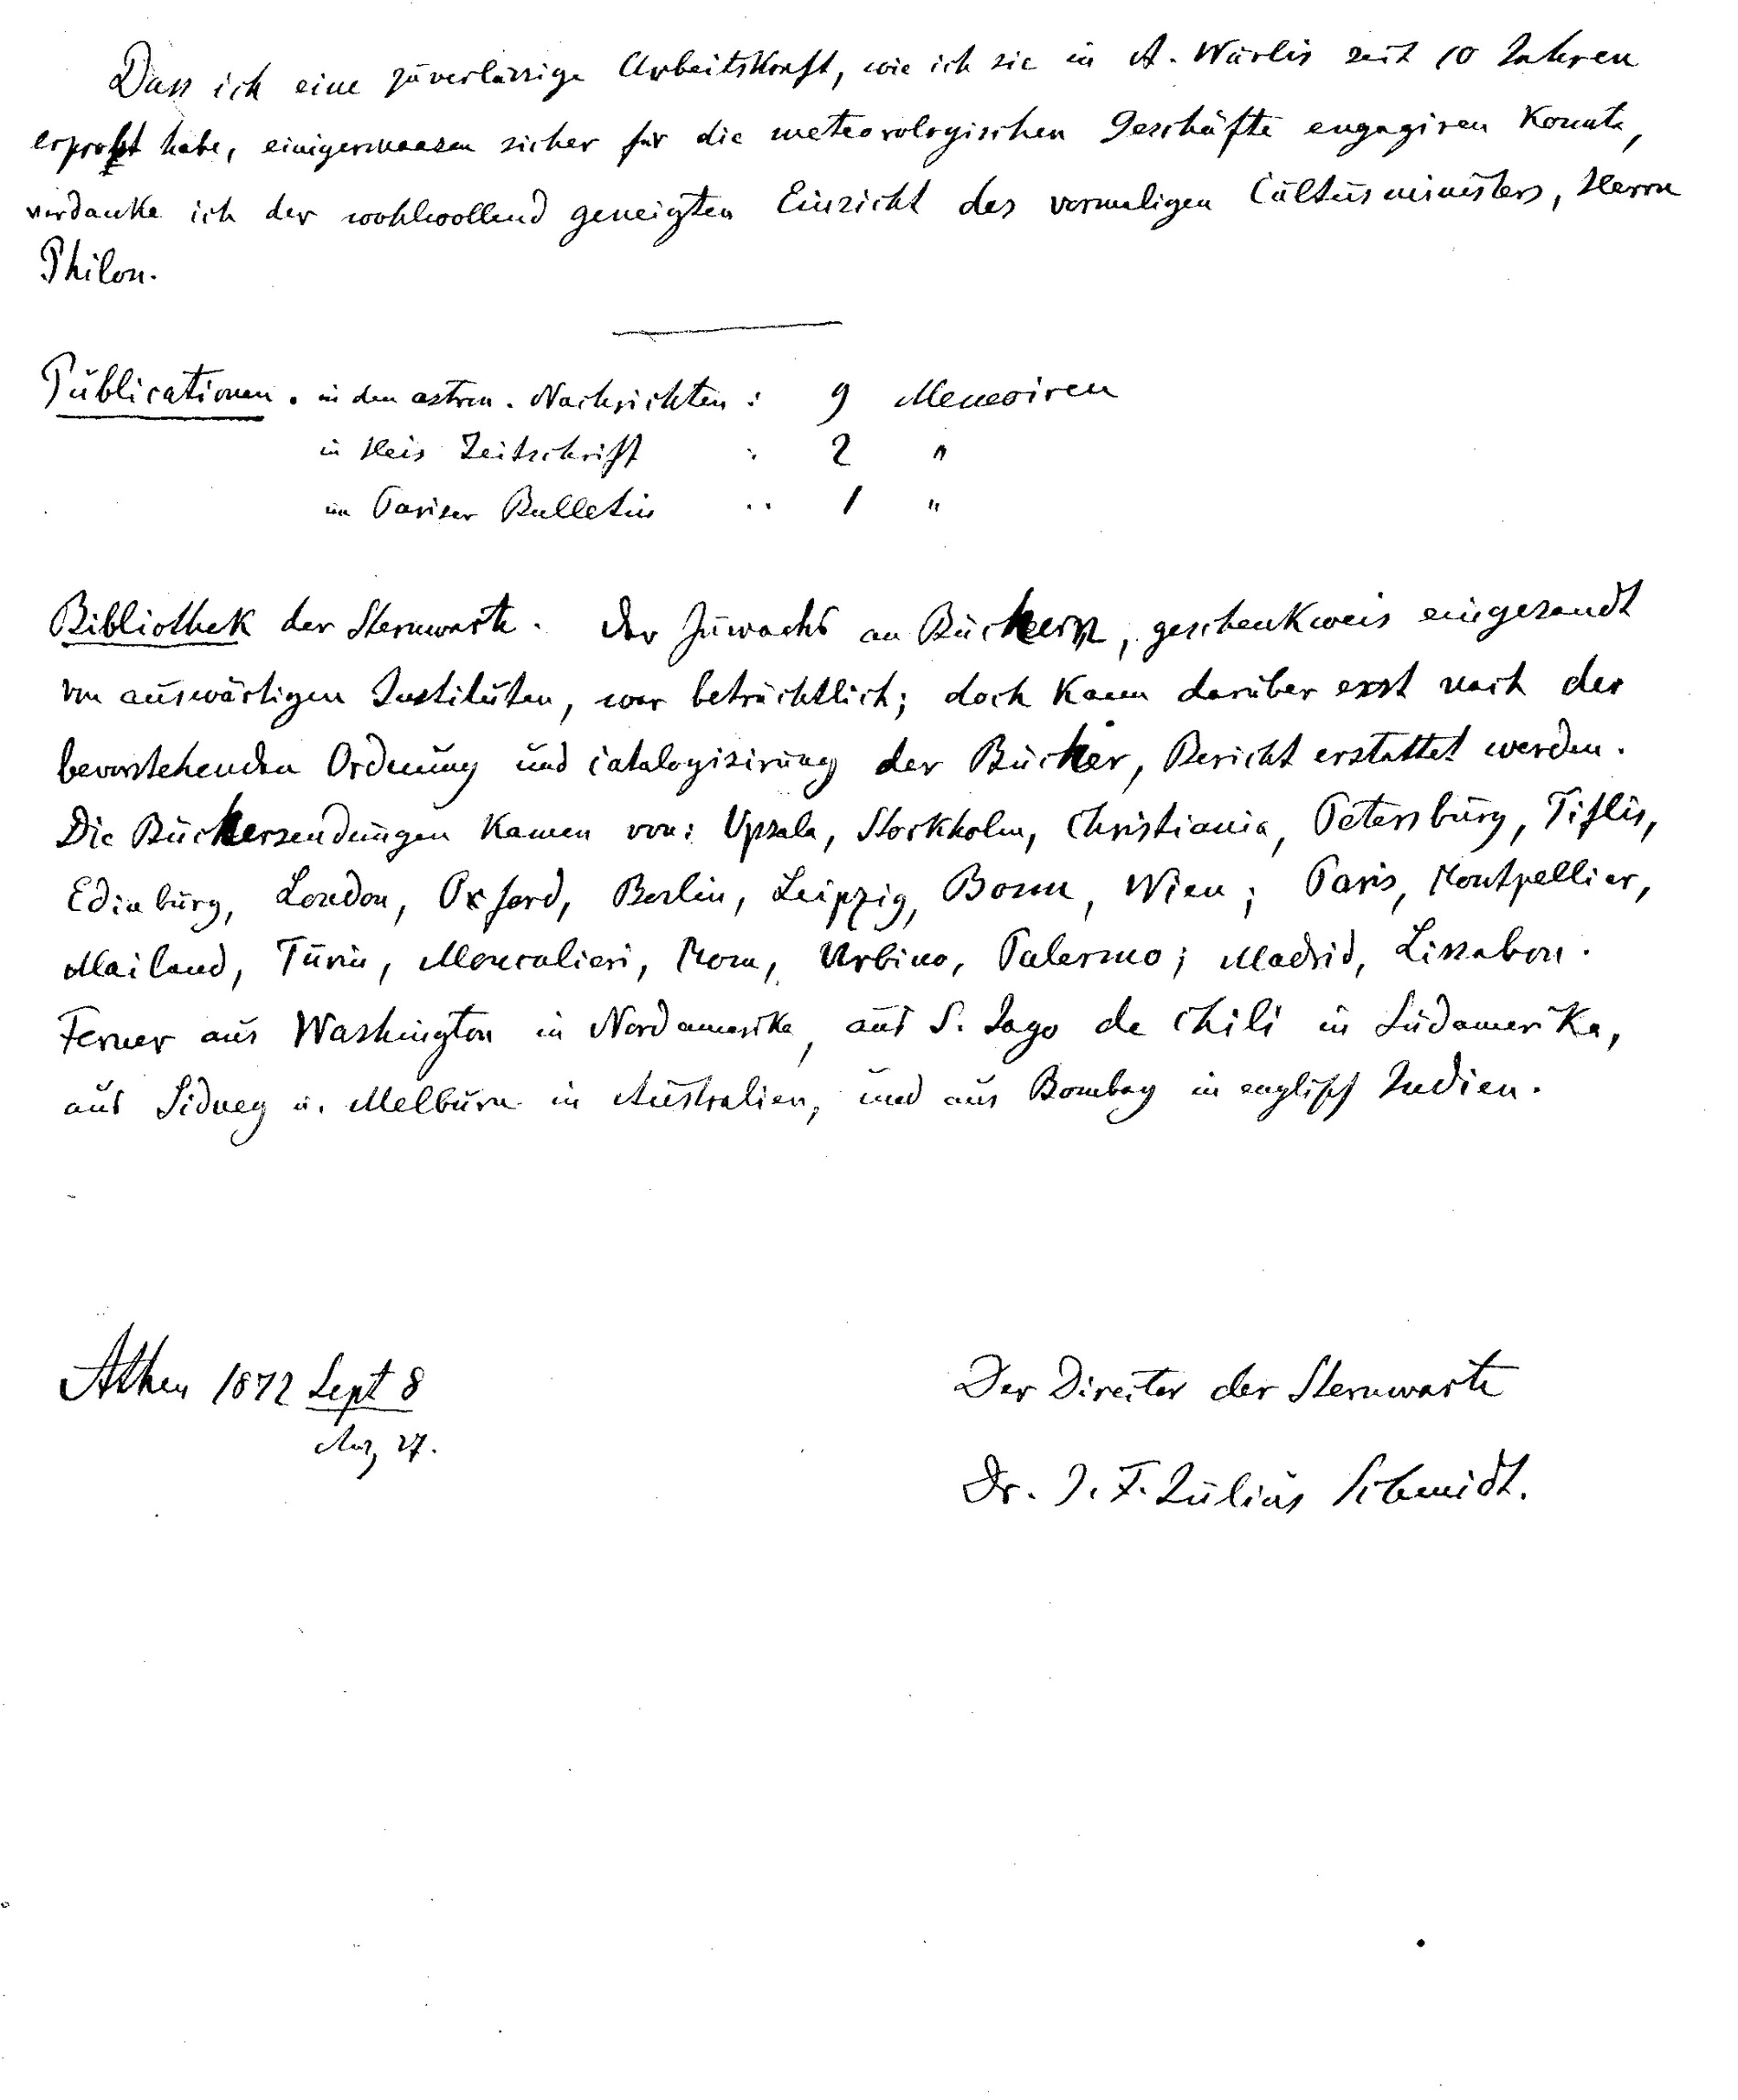 Dass ich eine zuverlässige Arbeitskraft, wie ich sie in A. Wurlis seit 10 Jahren
erprobt habe, einigermaasen sicher für die meteorologischen Geschäfte engagiren konnte,
verdanke ich der wohlwollend geneigten Einsicht des vormaligen Cultusministers, Herrn
Philon.
Publicationen. in den astron. Nachrichten : 9 Memoiren
in Heis Zeitschrift : 2 "
im Pariser Bulletin : 1 "
Bibliothek der Sternwarte. Der Zuwachs an Büchern, geschenkweis eingesandt
von auswärtigen Instituten, war beträchtlich; doch kann darüber erst nach der
bevorstehenden Ordnung und Catalogisirung der Bücher, Bericht erstattet werden.
Die Büchersendungen kamen von: Upsala, Stockholm, Christiania, Petersburg, Tiflis,
Edinburg, London, Oxford, Berlin, Leipzig, Bonn, Wien; Paris, Montpellier,
Mailand, Turin, Moncalieri, Rom, Urbino, Palermo; Madrid, Lissabon.
Ferner aus Washington in Nordamerika, aus S. Jago de Chili in Südamerika,
aus Sidney u. Melburn in Australien, und aus Bombay in englisch Indien.
Athen 1872 Sept 8
Aug 27.
Der Director der Sternwarte
Dr. J. F. Julius Schmidt.